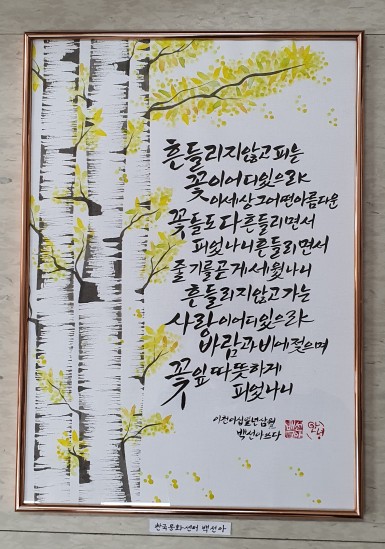 흔들리지않고피는
꽃이어디있으랴
이세상그어떤아름다운
꽃들도다흔들리면서
피었나니흔들리면서
줄기를곧게세웠나니
흔들리지않고가는
사랑이어디있으랴
바람과비에젖으며
꽃잎따뜻하게
피웠나니
이천이십일년삼월
백선아쓰다
한국문화센터 백선아